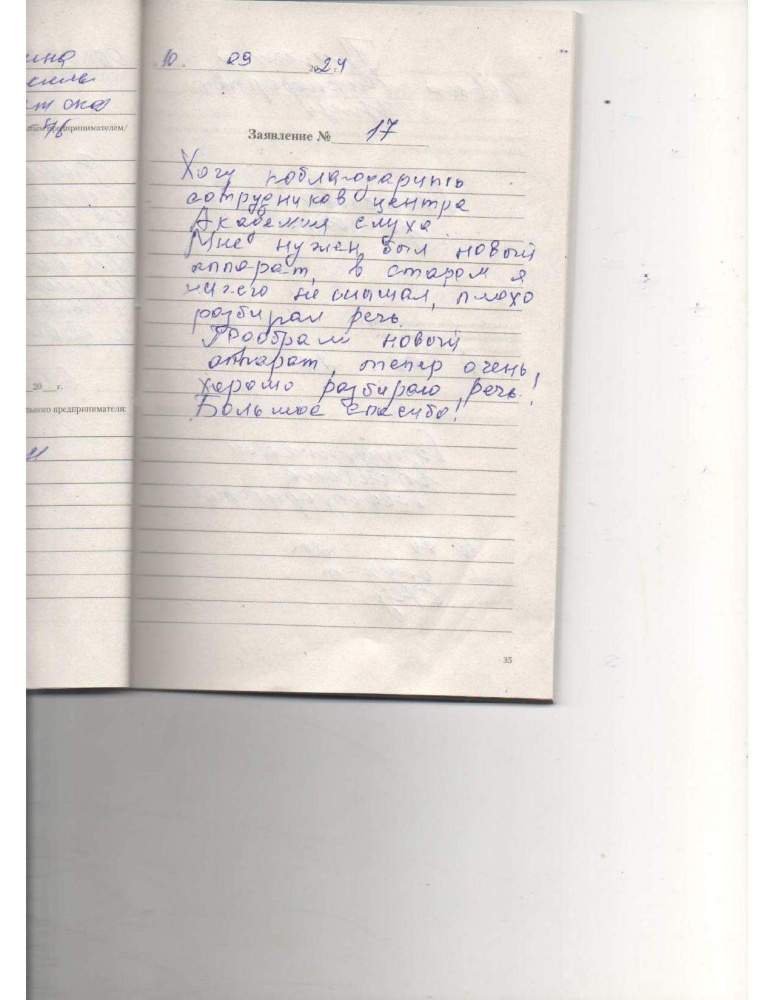 10. 09 2024
Заявление № 17
Хочу поблагодарить
сотрудников центра
Академия слуха.
Мне нужен был новый
аппарат, в старом я
ничего не слышал, плохо
разбирал речь.
Подобрали новый
аппарат, тепер очень
хорошо разбираю речь!
Большое спасибо!
20 г.
35